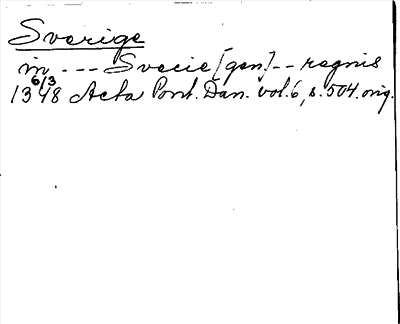 Sverige
in --- Svecie [gen.] -- regnis
6/3
1348 Acta Pont. Dan. vol. 6, s. 504. orig.